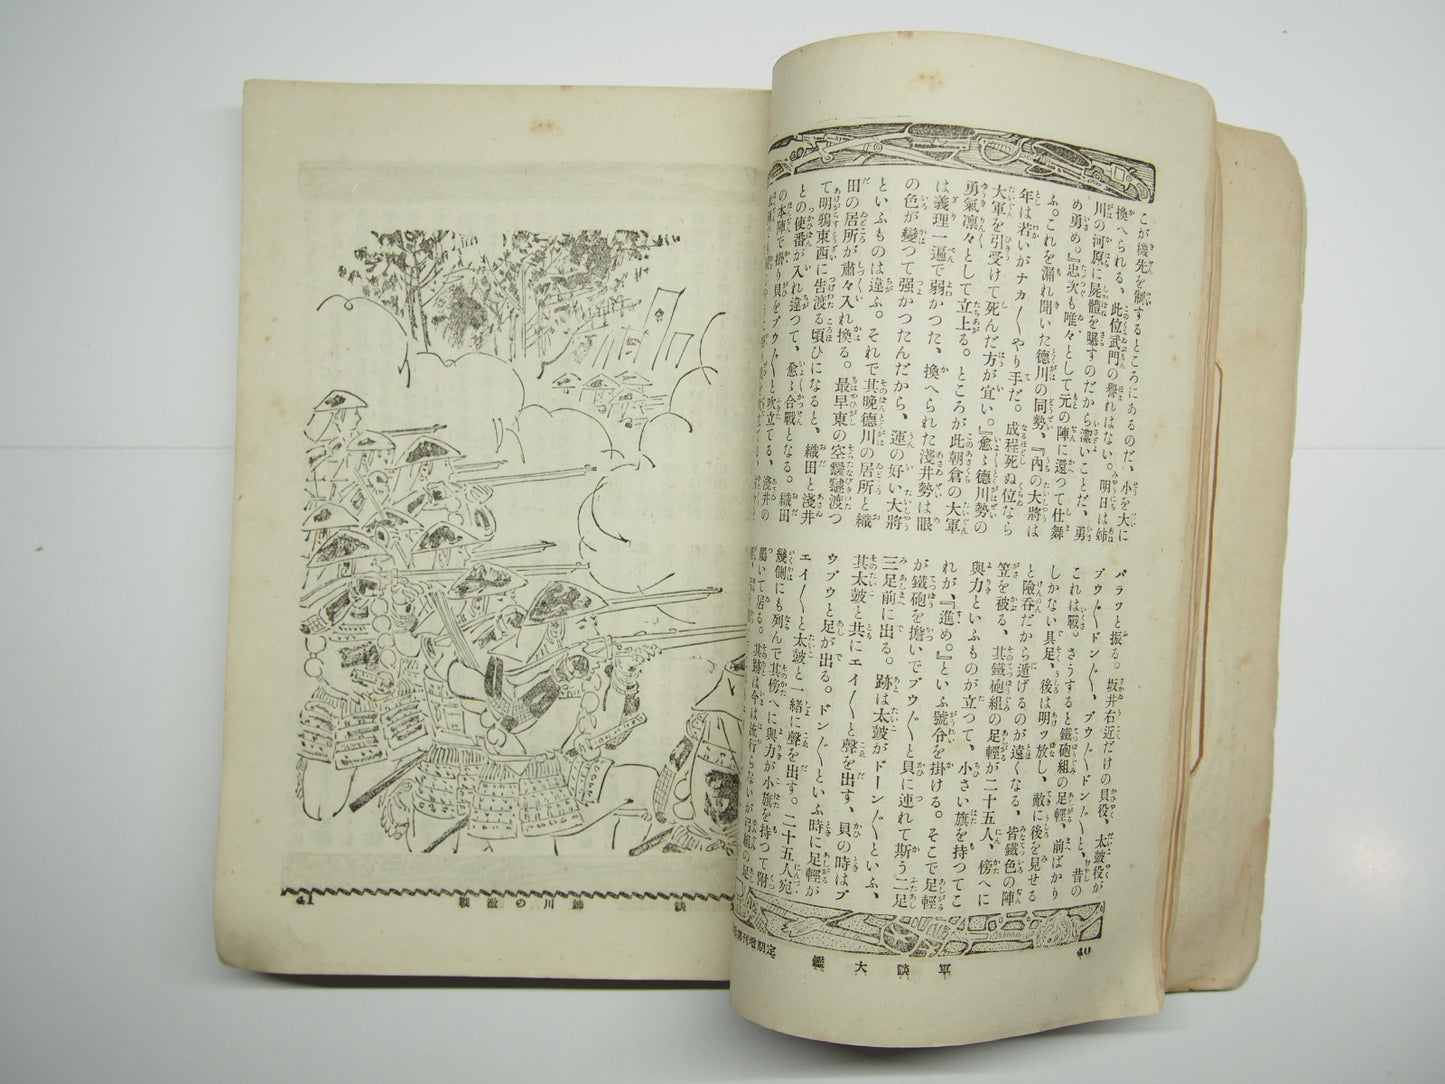 こが機先を制するところにあるのだ、小を大に
換へられる、此位武門の譽れはない。明日は姉
川の河原に屍體を曝すのだから潔いことだ、勇
め勇め。』忠次も唯々として元の陣に還つて仕舞
ふ。これを漏れ聞いた德川の同勢、『內の大將は
年は若いがナカ〱やり手だ。成程死ぬ位なら
大軍を引受けて死んだ方が宜い。』愈〻德川勢の
勇氣凛々として立上る。ところが此朝倉の大軍
は義理一遍で弱かつた、換へられた淺井勢は眼
の色が變つて强かつたんだから、運の好い大將
といふものは違ふ。それで其晩德川の居所と織
田の居所が肅々入れ換る。最早東の空靉靆渡つ
て明鴉東西に告渡る頃ひになると、織田と淺井
との使番が入れ違つて、愈〻合戰となる。織田
の本陣で掛り貝をブウ〱と吹立てる、淺井の
パラッと振る。坂井右近だけの貝役、太皷役が
ブウ〱ドン〱、ブウ〱ドン〱と、昔の
これは戰。さうすると鐵砲組の足輕、前ばかり
しかない具足、後は明ッ放し、敵に後を見せる
と險吞だから逃げるのが遠くなる、皆鐵色の陣
笠を被る、其鐵砲組の足輕が二十五人、傍へに
與力といふものが立つて、小さい旗を持つてこ
れが、『進め。』といふ號令を掛ける。そこで足輕
が鐵砲を擔いでブウ〱と貝に連れて斯う二足
三足前に出る。跡は太皷がドーン〱といふ、
其太皷と共にエイ〱と聲を出す、貝の時はブ
ウブウと足が出る。ドン〱といふ時に足輕が
エイ〱と太皷と一緖に聲を出す。二十五人宛
幾側にも列んで其傍へに與力が小旗を持つて附
屬いて居る。其跡は今は流行らないが弓組の足
40
軍談大鑑
定期增刊第
姉川の激戰
41